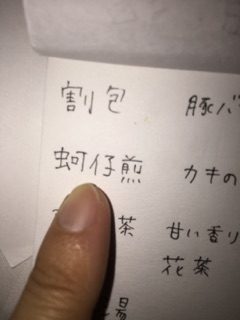 割包 豚バ
蚵仔煎 カキの
茶 甘い香り
花茶
湯